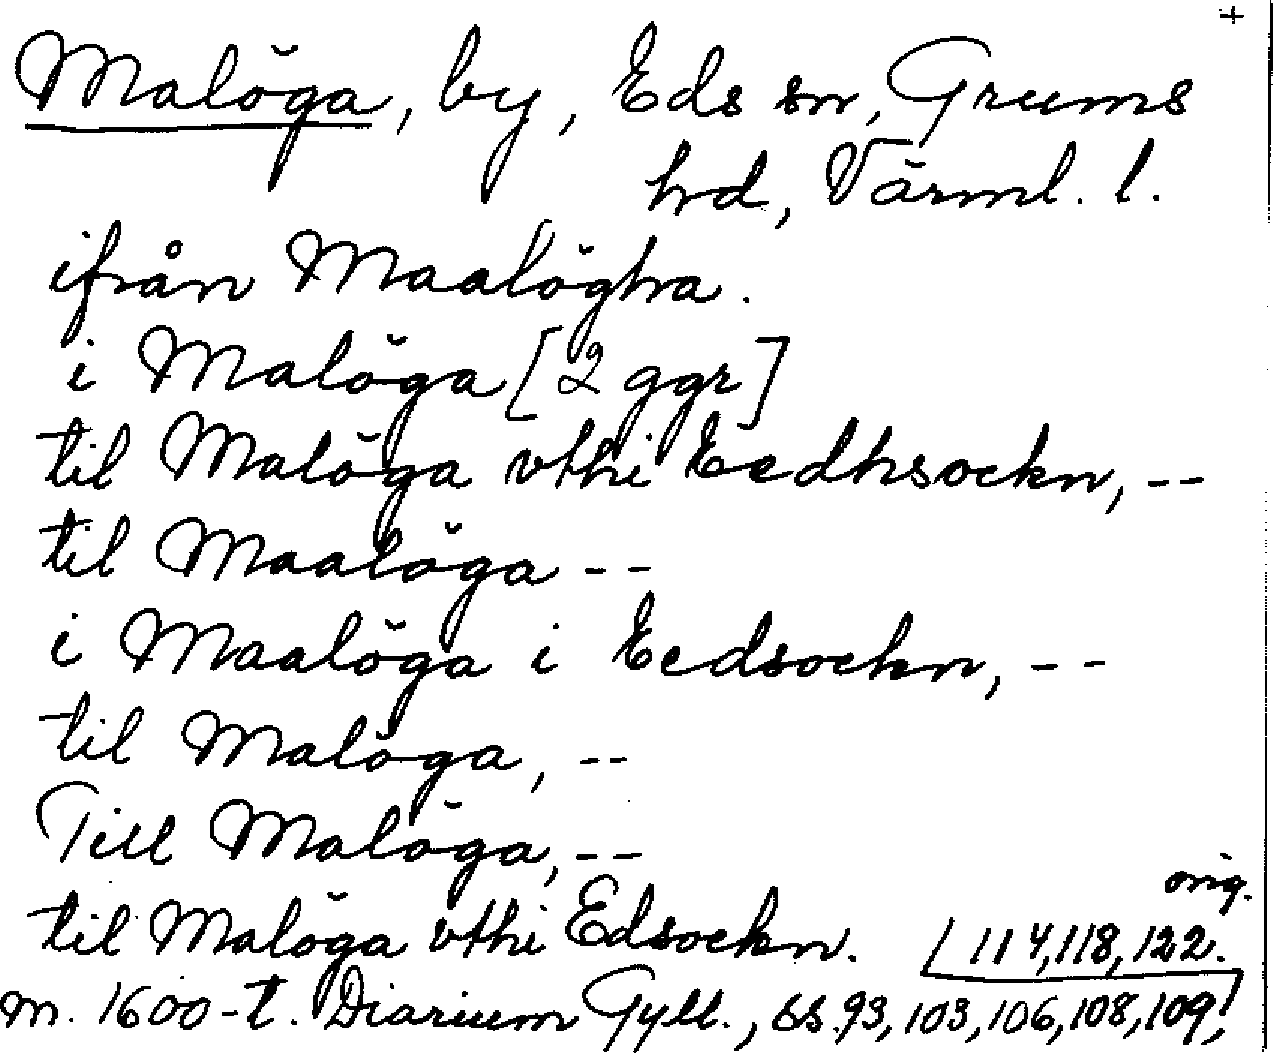 +
Malöga, by, Eds sn, Grums
hrd, Värml. l.
ifrån Maalögha.
i Malöga [2 ggr]
til Malöga vthi Eedhsockn, --
til Maalöga --
i Maalöga i Eedsockn, --
til Malöga, --
Till Malöga, --
orig.
til Malöga vthi Edsockn. 114, 118, 122.
m. 1600-t. Diarium Gyll., ss. 93, 103, 106, 108, 109,